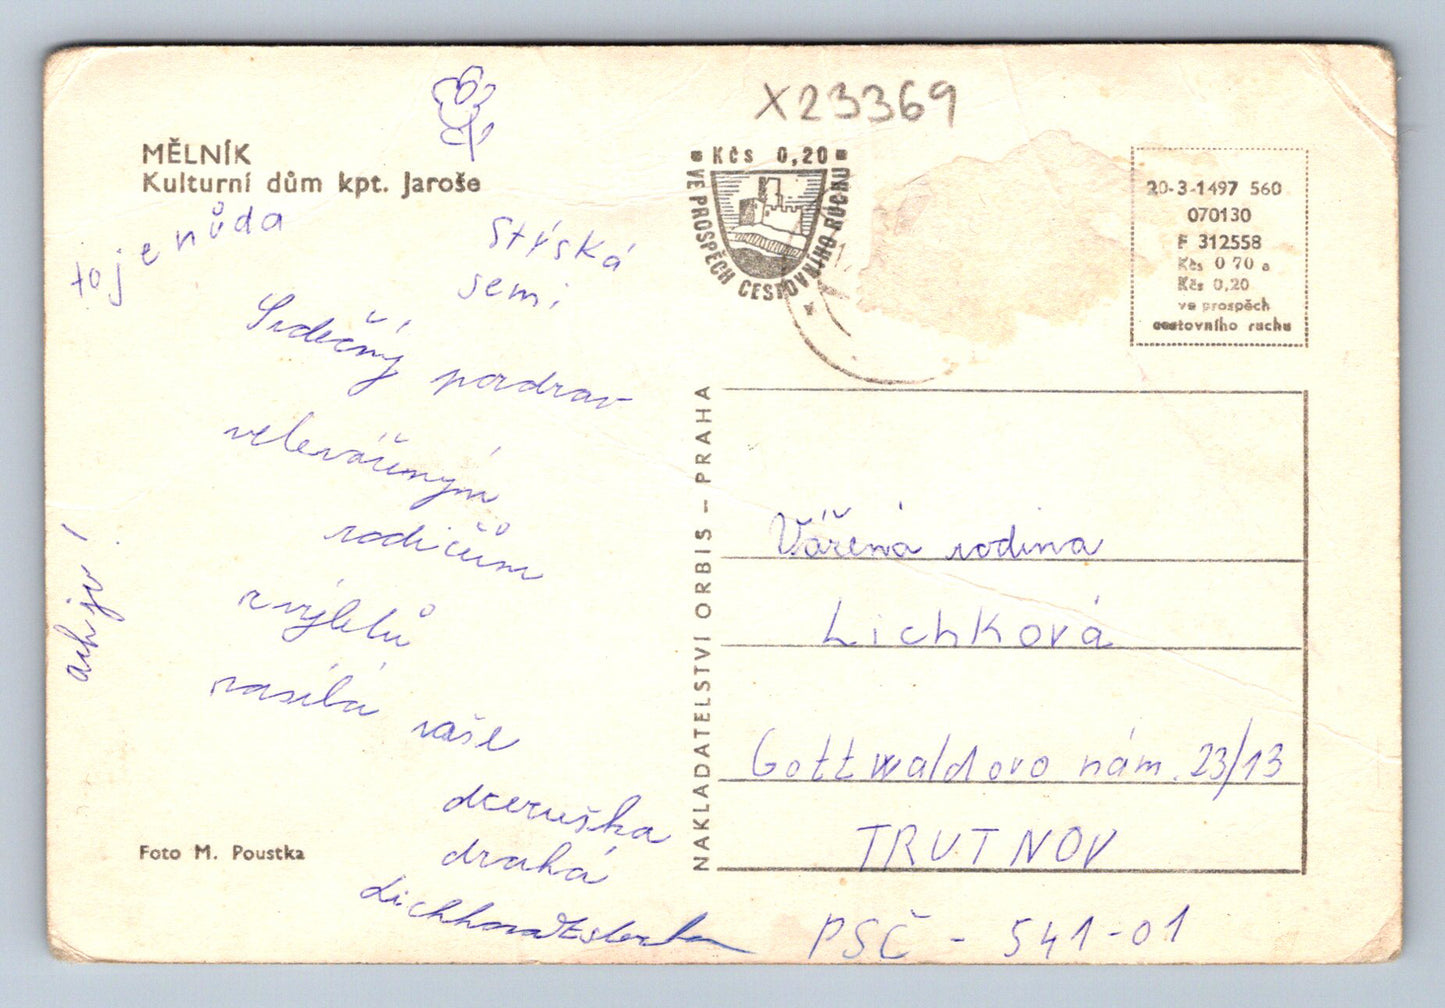 X23369
MĚLNÍK
Kulturní dům kpt. Jaroše
to je nůda
Stýská
se mi
Srdečný pozdrav
veleváženým
rodičům
z výletů
zasílá vaše
dceruška
drahá
Lichková
ach jo!
Foto M. Poustka
Kčs 0,20
VE PROSPĚCH CESTOVNÍHO RUCHU
20-3-1497 560
070130
F 312558
Kčs 0 70 a
Kčs 0,20
ve prospěch
cestovního ruchu
NAKLADATELSTVÍ ORBIS – PRAHA
Vážená rodina
Lichková
Gottwaldovo nám. 23/13
TRUTNOV
PSČ - 541-01